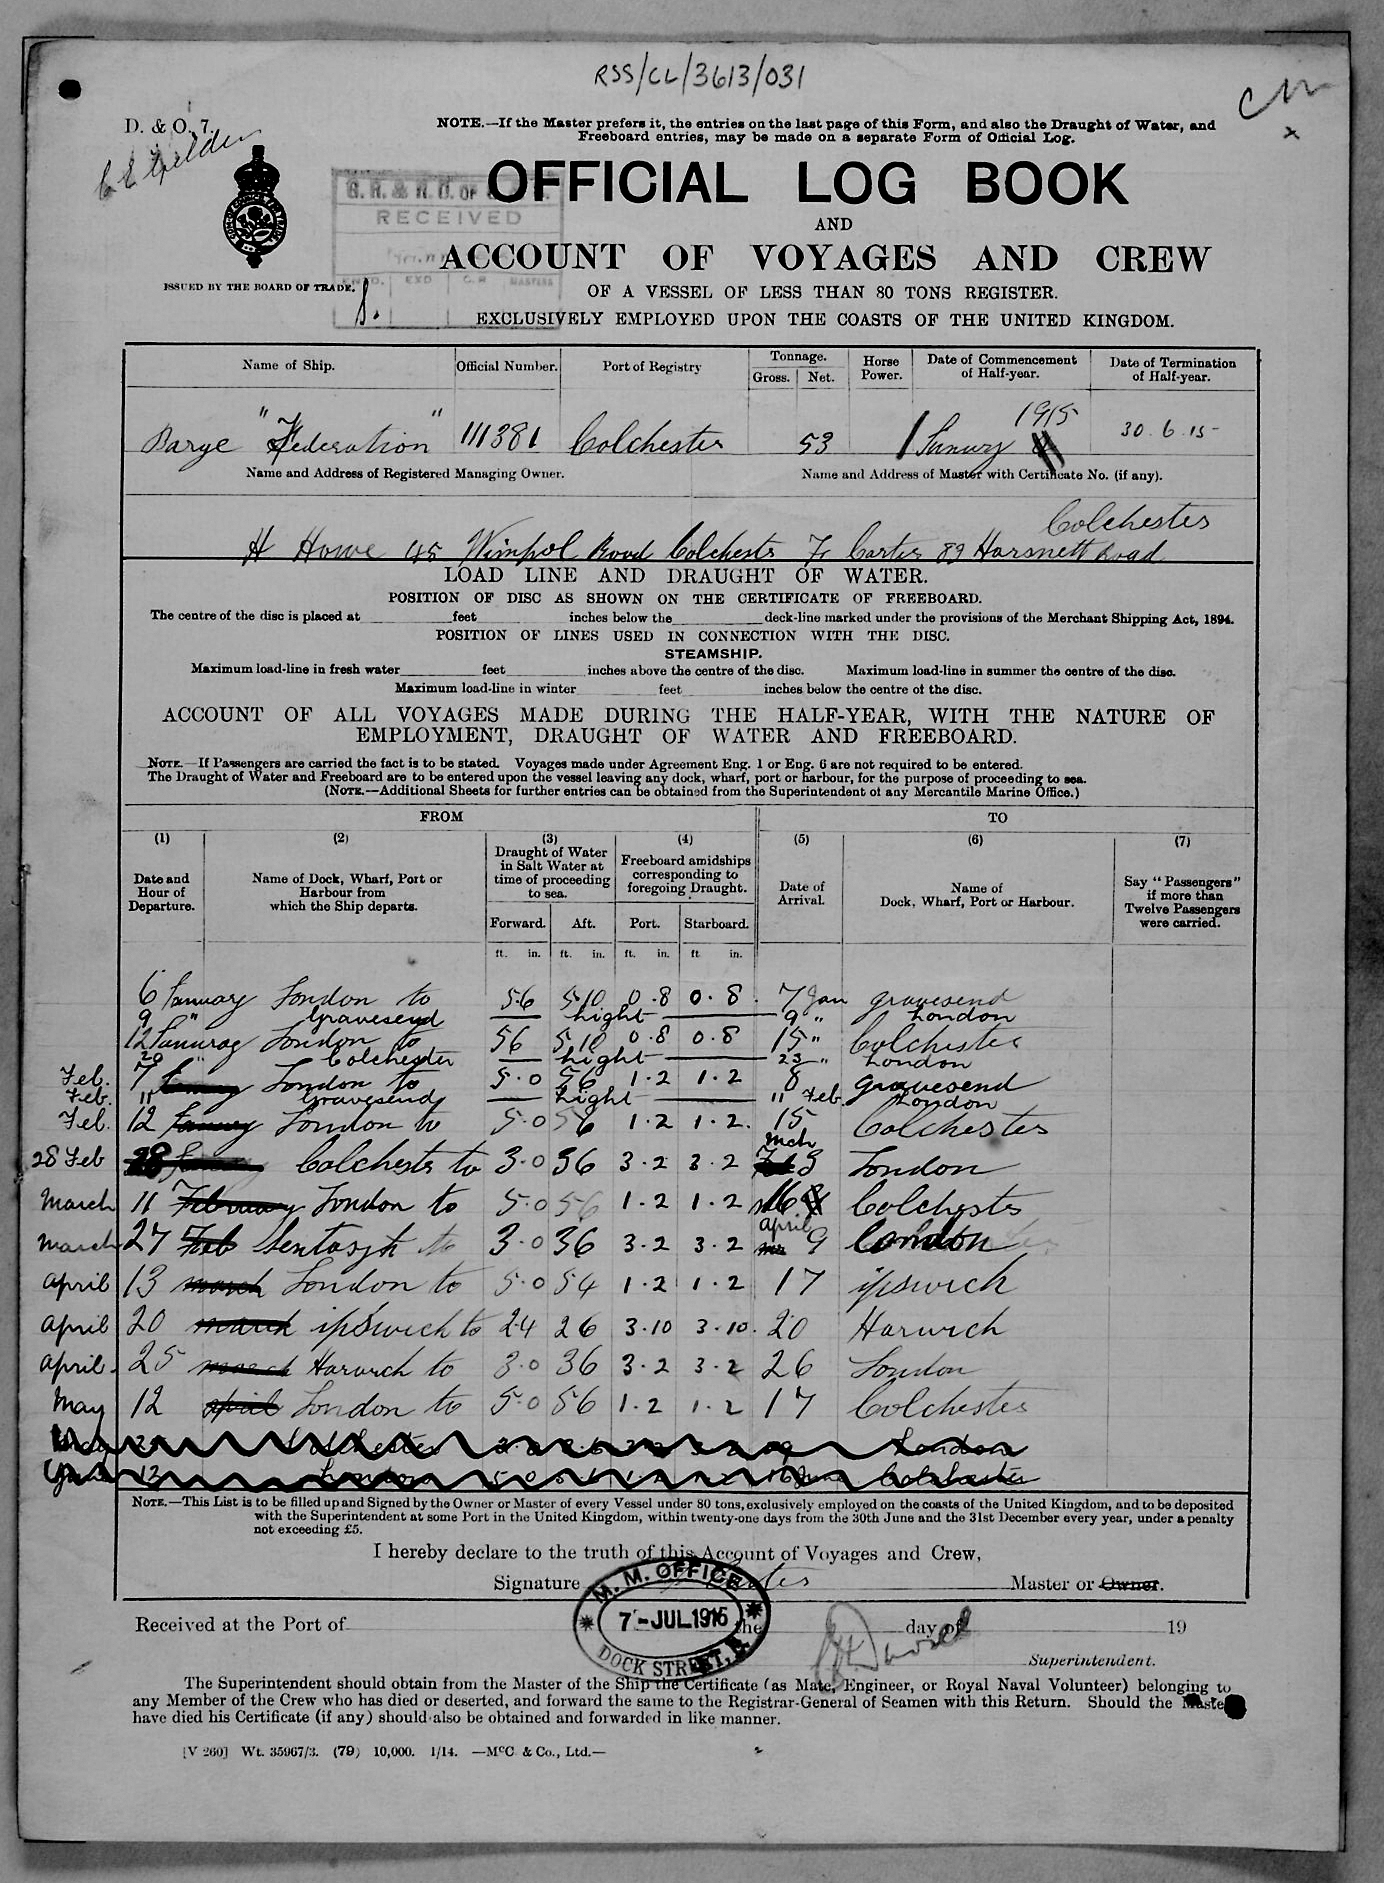 RSS/CL/3613/031
D. & O. 7.
NOTE.—If the Master prefers it, the entries on the last page of this Form, and also the Draught of Water, and
Freeboard entries, may be made on a separate Form of Official Log.
RECEIVED
OFFICIAL LOG BOOK
AND
ACCOUNT OF VOYAGES AND CREW
ISSUED BY THE BOARD OF TRADE.
OF A VESSEL OF LESS THAN 80 TONS REGISTER.
EXCLUSIVELY EMPLOYED UPON THE COASTS OF THE UNITED KINGDOM.
Name of Ship. Official Number. Port of Registry Tonnage. Gross. Net. Horse Power. Date of Commencement of Half-year. Date of Termination of Half-year.
Barge "Federation" 111381 Colchester 53 1 Janury 1915 30.6.15
Name and Address of Registered Managing Owner. Name and Address of Master with Certificate No. (if any).
H Howe 45 Wimpol Road Colchester F Carter 89 Harsnett Road Colchester
LOAD LINE AND DRAUGHT OF WATER.
POSITION OF DISC AS SHOWN ON THE CERTIFICATE OF FREEBOARD.
The centre of the disc is placed at feet inches below the deck-line marked under the provisions of the Merchant Shipping Act, 1894.
POSITION OF LINES USED IN CONNECTION WITH THE DISC.
STEAMSHIP.
Maximum load-line in fresh water feet inches above the centre of the disc. Maximum load-line in summer the centre of the disc.
Maximum load-line in winter feet inches below the centre of the disc.
ACCOUNT OF ALL VOYAGES MADE DURING THE HALF-YEAR, WITH THE NATURE OF
EMPLOYMENT, DRAUGHT OF WATER AND FREEBOARD.
NOTE.—If Passengers are carried the fact is to be stated. Voyages made under Agreement Eng. 1 or Eng. 6 are not required to be entered.
The Draught of Water and Freeboard are to be entered upon the vessel leaving any dock, wharf, port or harbour, for the purpose of proceeding to sea.
(NOTE.—Additional Sheets for further entries can be obtained from the Superintendent of any Mercantile Marine Office.)
FROM TO
(1) (2) (3) (4) (5) (6) (7)
Date and Hour of Departure. Name of Dock, Wharf, Port or Harbour from which the Ship departs. Draught of Water in Salt Water at time of proceeding to sea. Freeboard amidships corresponding to foregoing Draught. Date of Arrival. Name of Dock, Wharf, Port or Harbour. Say "Passengers" if more than Twelve Passengers were carried.
Forward. Aft. Port. Starboard.
ft. in. ft. in. ft. in. ft. in.
6 January London to 5.6 5.10 0.8 0.8. 7 Jan gravesend
9 " Gravesend light 9 " London
12 Januray London to 56 5.10 0.8 0.8 15 " Colchester
20 " Colchester light 23 " London
Feb. 7 London to 5.0 56 1.2 1.2 8 gravesend
Feb. 11 Gravesend light 11 Feb. London
Feb. 12 London to 5.0 56 1.2 1.2. 15 Colchester
28 Feb Colchester to 3.0 36 3.2 3.2 Mch 3 London
March 11 February London to 5.0 56 1.2 1.2 16 Colchester
March 27 Feb to 3.0 36 3.2 3.2 april 9 London
april 13 march London to 5.0 54 1.2 1.2 17 ipswich
april 20 march ipswich to 24 26 3.10 3.10. 20 Harwich
april. 25 march Harwich to 3.0 36 3.2 3.2 26 London
May 12 april London to 5.0 56 1.2 1.2 17 Colchester
Colchester London
13 London 5.0 16 June Colchester
NOTE.—This List is to be filled up and Signed by the Owner or Master of every Vessel under 80 tons, exclusively employed on the coasts of the United Kingdom, and to be deposited
with the Superintendent at some Port in the United Kingdom, within twenty-one days from the 30th June and the 31st December every year, under a penalty
not exceeding £5.
I hereby declare to the truth of this Account of Voyages and Crew,
Signature Master or Owner.
M. M. OFFICE
7-JUL 1915
DOCK STREET, E
Received at the Port of the day of 19
Superintendent.
The Superintendent should obtain from the Master of the Ship the Certificate (as Mate, Engineer, or Royal Naval Volunteer) belonging to
any Member of the Crew who has died or deserted, and forward the same to the Registrar-General of Seamen with this Return. Should the Master
have died his Certificate (if any) should also be obtained and forwarded in like manner.
[V 260] Wt. 35967/3. (79) 10,000. 1/14. —McC & Co., Ltd.—